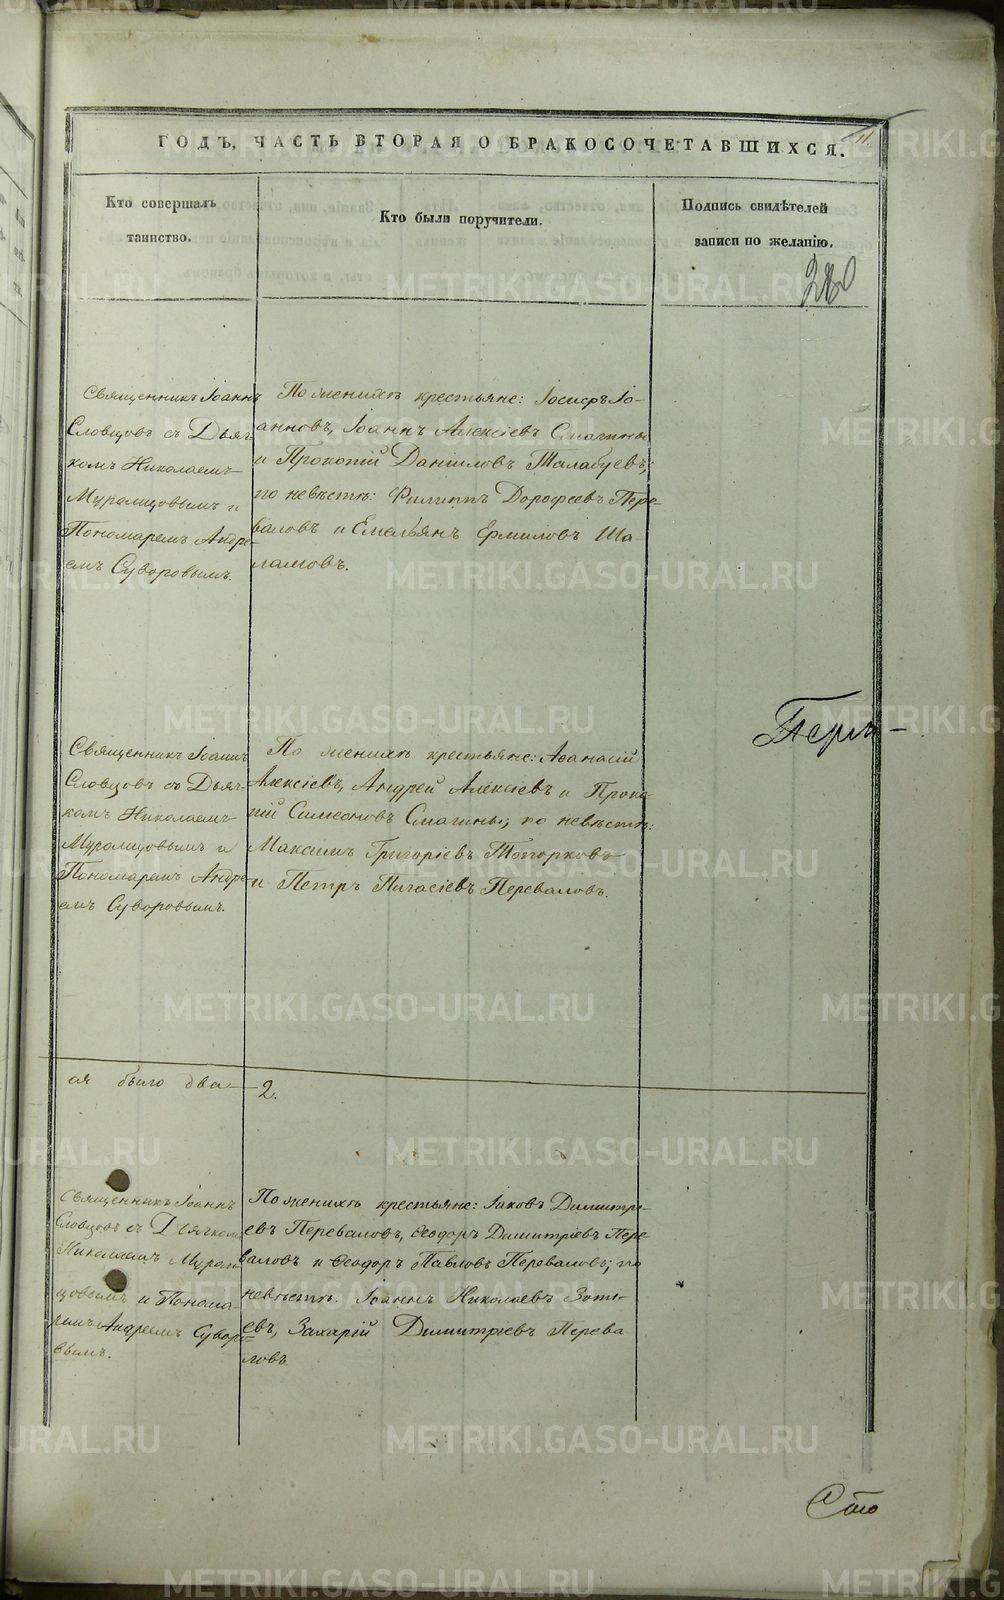 ГОДЪ, ЧАСТЬ ВТОРАЯ О БРАКОСОЧЕТАВШИХСЯ.
11.
Кто совершалъ
таинство.
Кто были поручители.
Подпись свидѣтелей
записи по желанію.
280
Священникъ Іоаннъ
Словцовъ съ Дьяч-
комъ Николаемъ
Муромцовымъ и
Пономаремъ Андре-
емъ Суворовымъ.
По женихѣ крестьяне: Іосифъ Іо-
анновъ, Іоаннъ Алексіевъ Смагины
и Прокопій Даніиловъ Талабуевъ;
по невѣстѣ: Филиппъ Дорофеевъ Пере-
валовъ и Емельянъ Ермиловъ Ша-
ламовъ.
Перм-
Священникъ Іоаннъ
Словцовъ съ Дьяч-
комъ Николаемъ
Муромцовымъ и
Пономаремъ Андре-
емъ Суворовымъ.
По женихѣ крестьяне: Аѳанасій
Алексіевъ, Андрей Алексіевъ и Проко-
пій Симеоновъ Смагины; по невѣстѣ:
Максимъ Григоріевъ Топорковъ
и Петръ Пигасіевъ Переваловъ.
ая было два - 2.
Священникъ Іоаннъ
Словцовъ съ Дьячкомъ
Николаемъ Муром-
цовымъ и Понома-
ремъ Андреемъ Суворо-
вымъ.
По женихѣ крестьяне: Іаковъ Димитрі-
евъ Переваловъ, Ѳеодоръ Димитріевъ Пере-
валовъ и Ѳеодоръ Павловъ Переваловъ; по
невѣстѣ: Іоаннъ Николаевъ Зоти-
евъ, Захарій Димитріевъ Перева-
ловъ.
Сто
METRIKI.GASO-URAL.RU